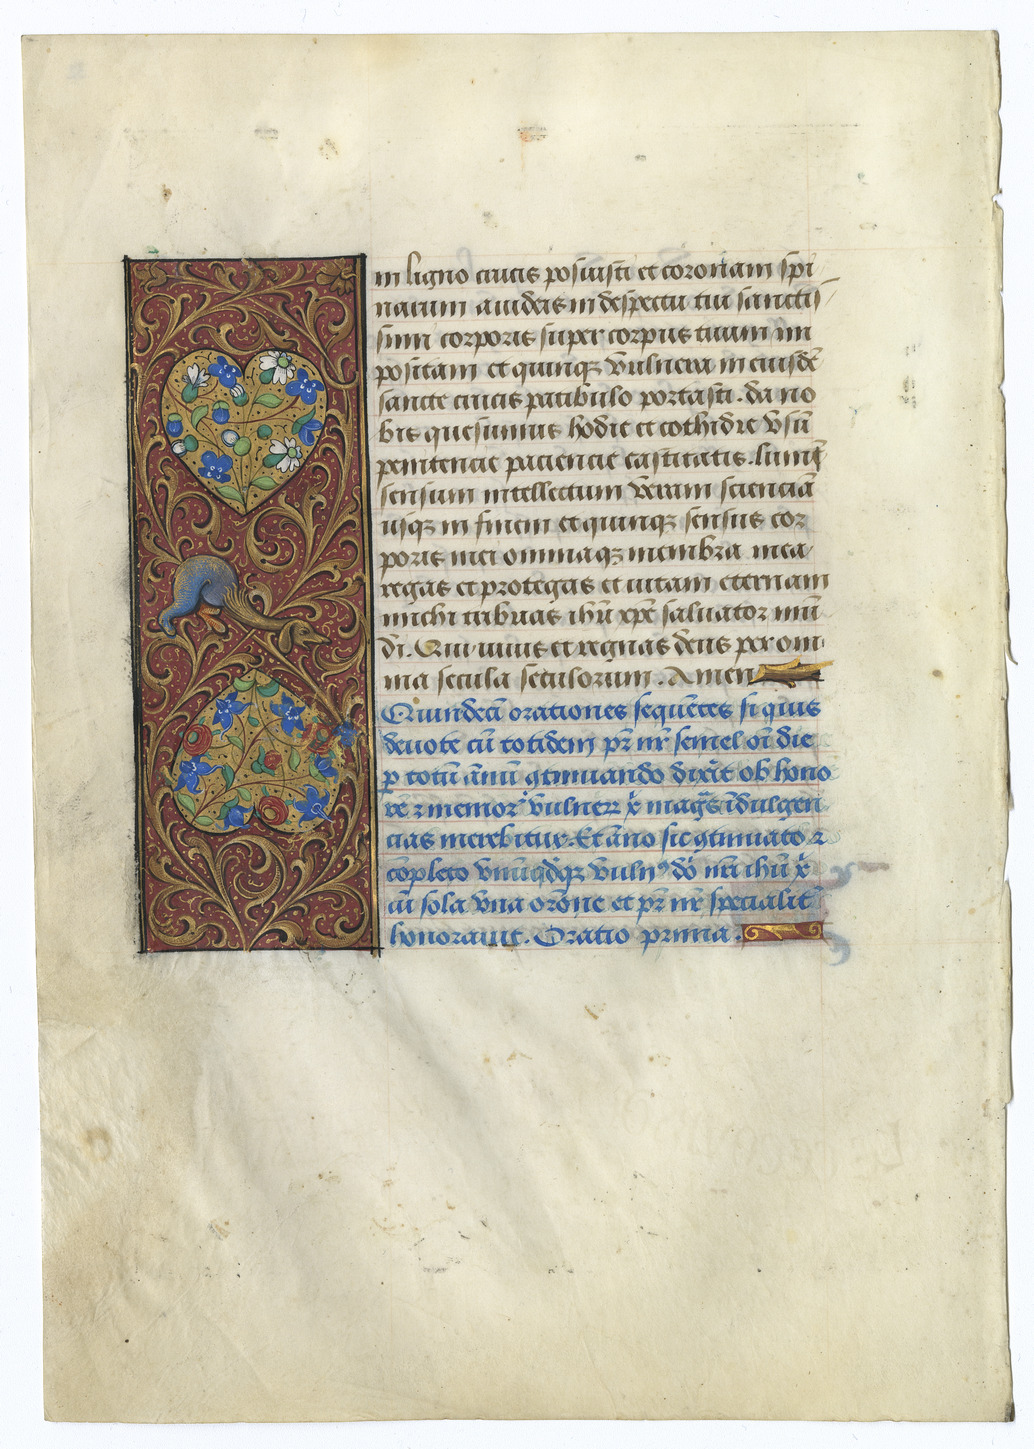 in ligno crucis posuisti et coronam spi
narum a iudeis in despectu tui sanctis
simi corporis super corpus tuum im
positam et quinqȝ vulnera in eiusdē
sancte crucis patibulo portasti . da no
bis quesumus hodie et cothidie vsū
penitencie paciencie castitatis . lumē
sensum intellectum veram scienciā
usqȝ in finem et quinqȝ sensus cor
poris mei omniaqȝ membra mea
regas et protegas et uitam eternam
michi tribuas ihū xp̄e saluator mū
di . Qui uiuis et regnas deus per om
nia secula seculorum . Amen
Quindecī orationes sequētes si quis
deuote cū totidem pr̄ nr̄ semel oī die
p totū ānū ꝯtinuando dixīt ob hono
re ⁊ memor vulnerꝝ x̄ magˢ īdulgen
cias merebitur . Et āno sic ꝯtinuato ⁊
cōpleto vnūqdqȝ vulnꝰ dō nrī ihū x̄
cū sola vna orōne et pr̄ nr̄ specialit̄
honorauit . Oratio prima .